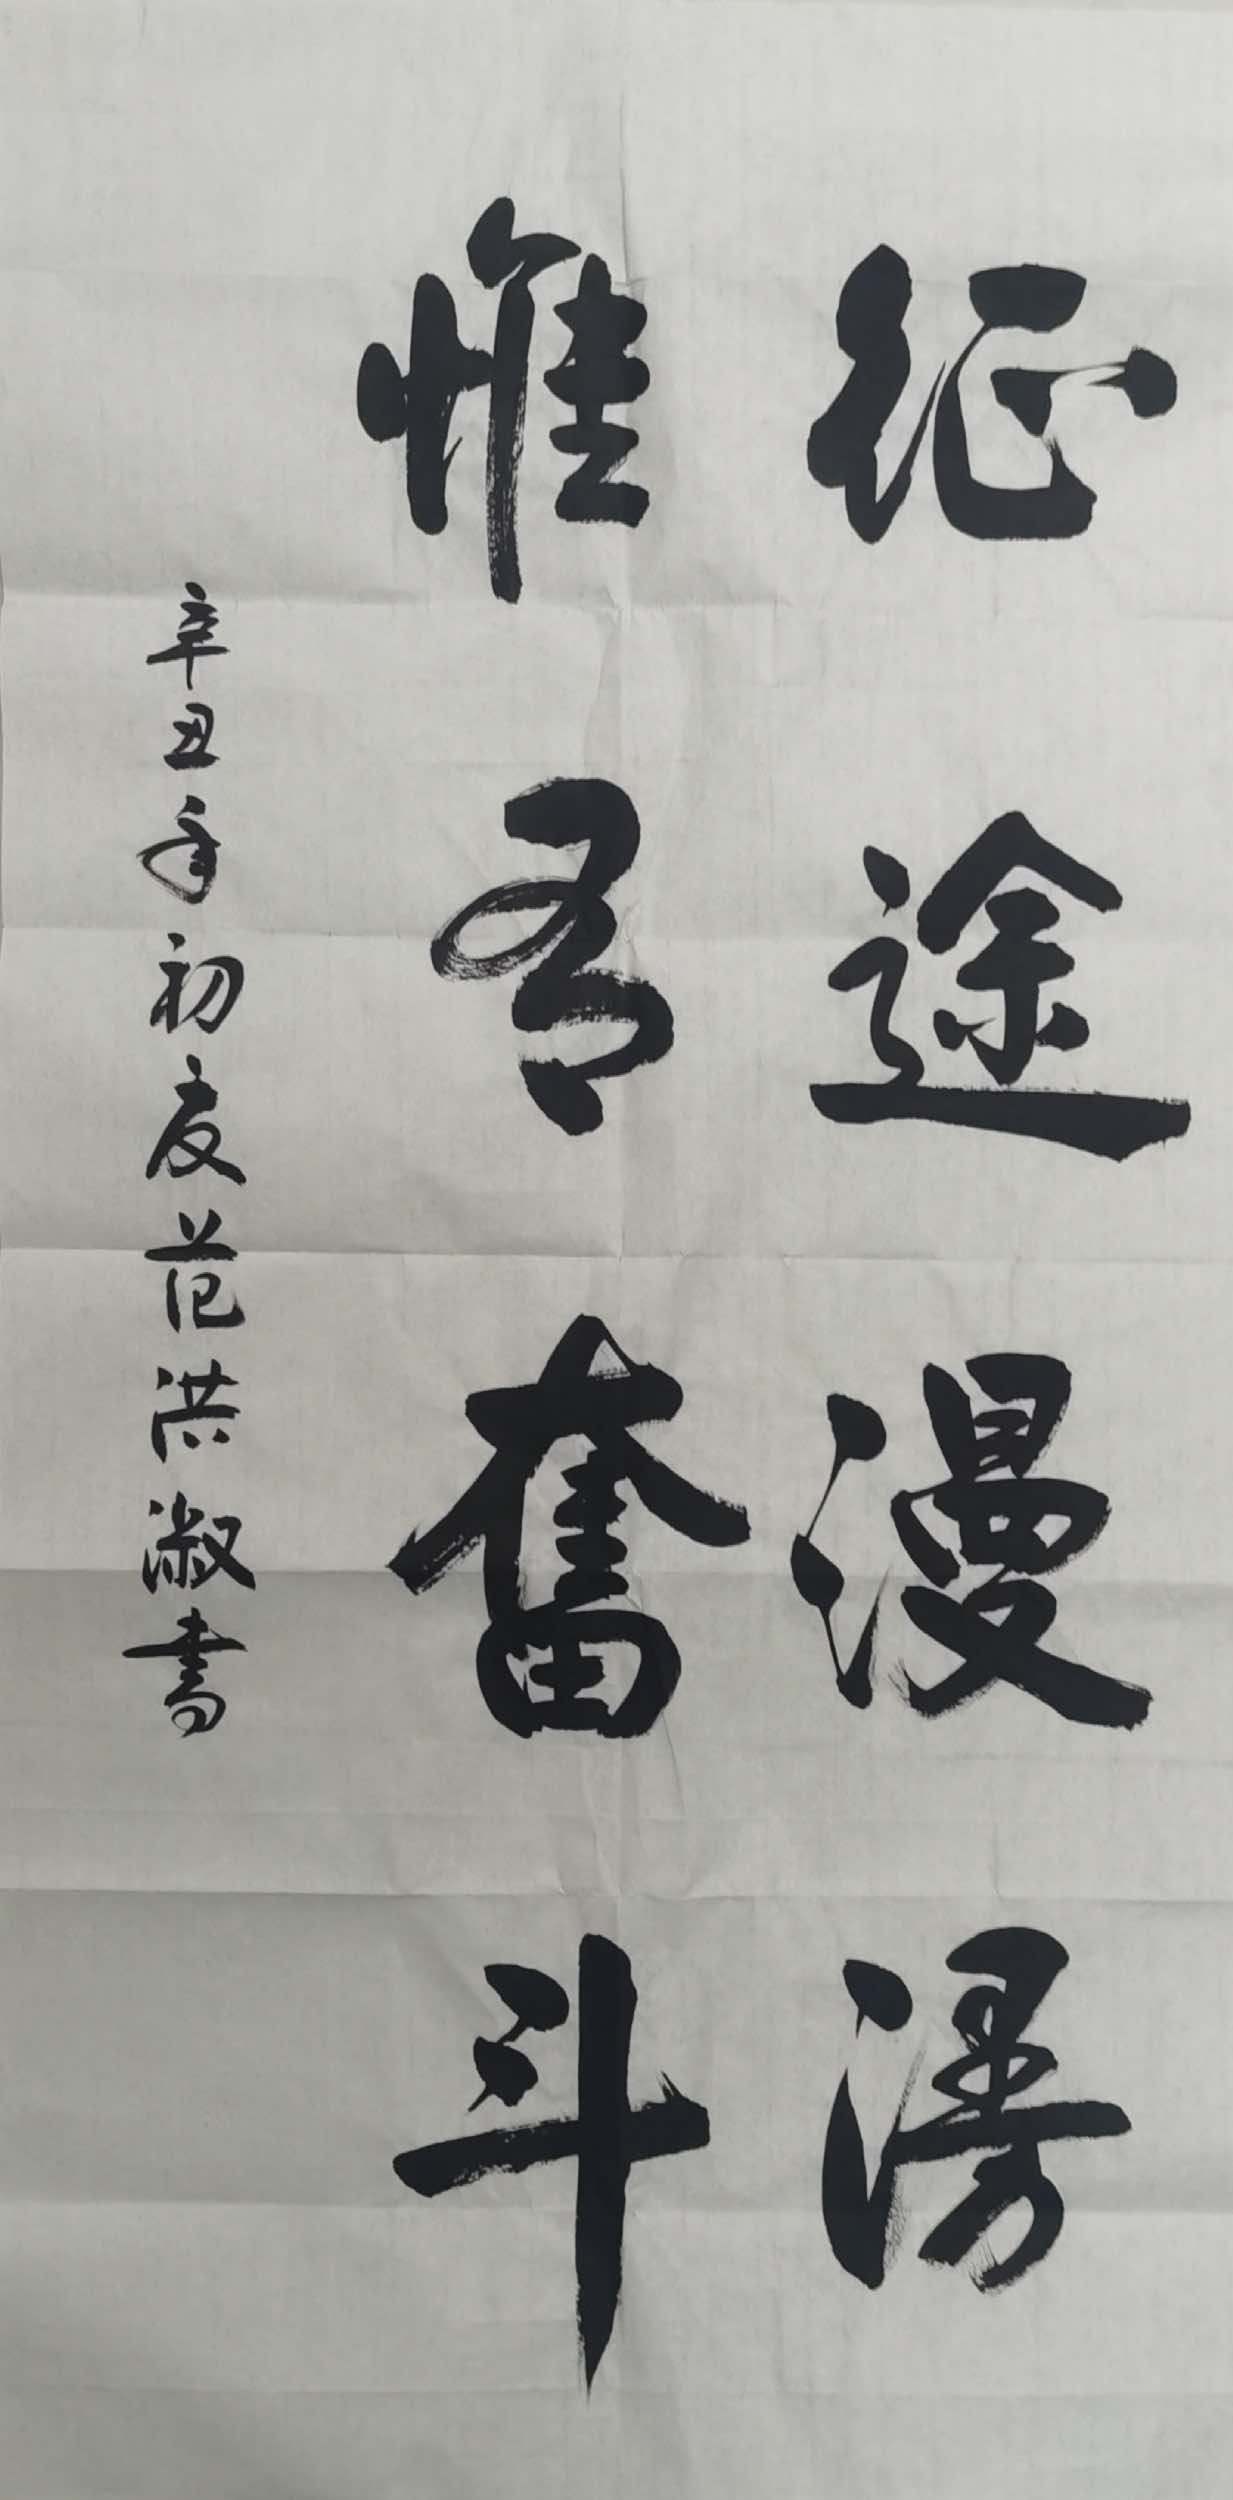 征途漫漫
惟有奋斗
辛丑年初夏范洪淑書